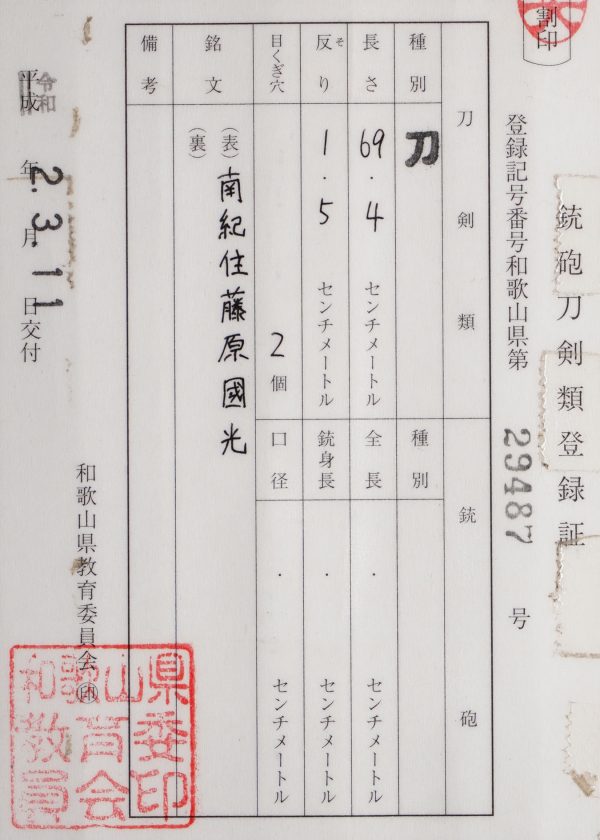 銃砲刀剣類登録証
割印
登録記号番号和歌山県第 29487 号
刀剣類
種別 刀
長さ 69.4 センチメートル
反り そ 1.5 センチメートル
目くぎ穴 2個
銘文
(表) 南紀住藤原國光
(裏)
備考
銃砲
種別
全長 . センチメートル
銃身長 . センチメートル
口径 . センチメートル
平成 令和 2年3.月11日交付
和歌山県教育委員会 印
和歌山県
教育委
員会印